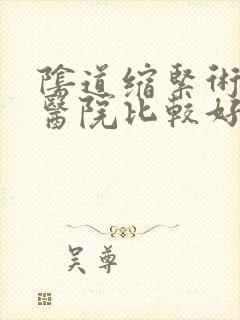 陰道缩緊術
醫院比較好
吴尊